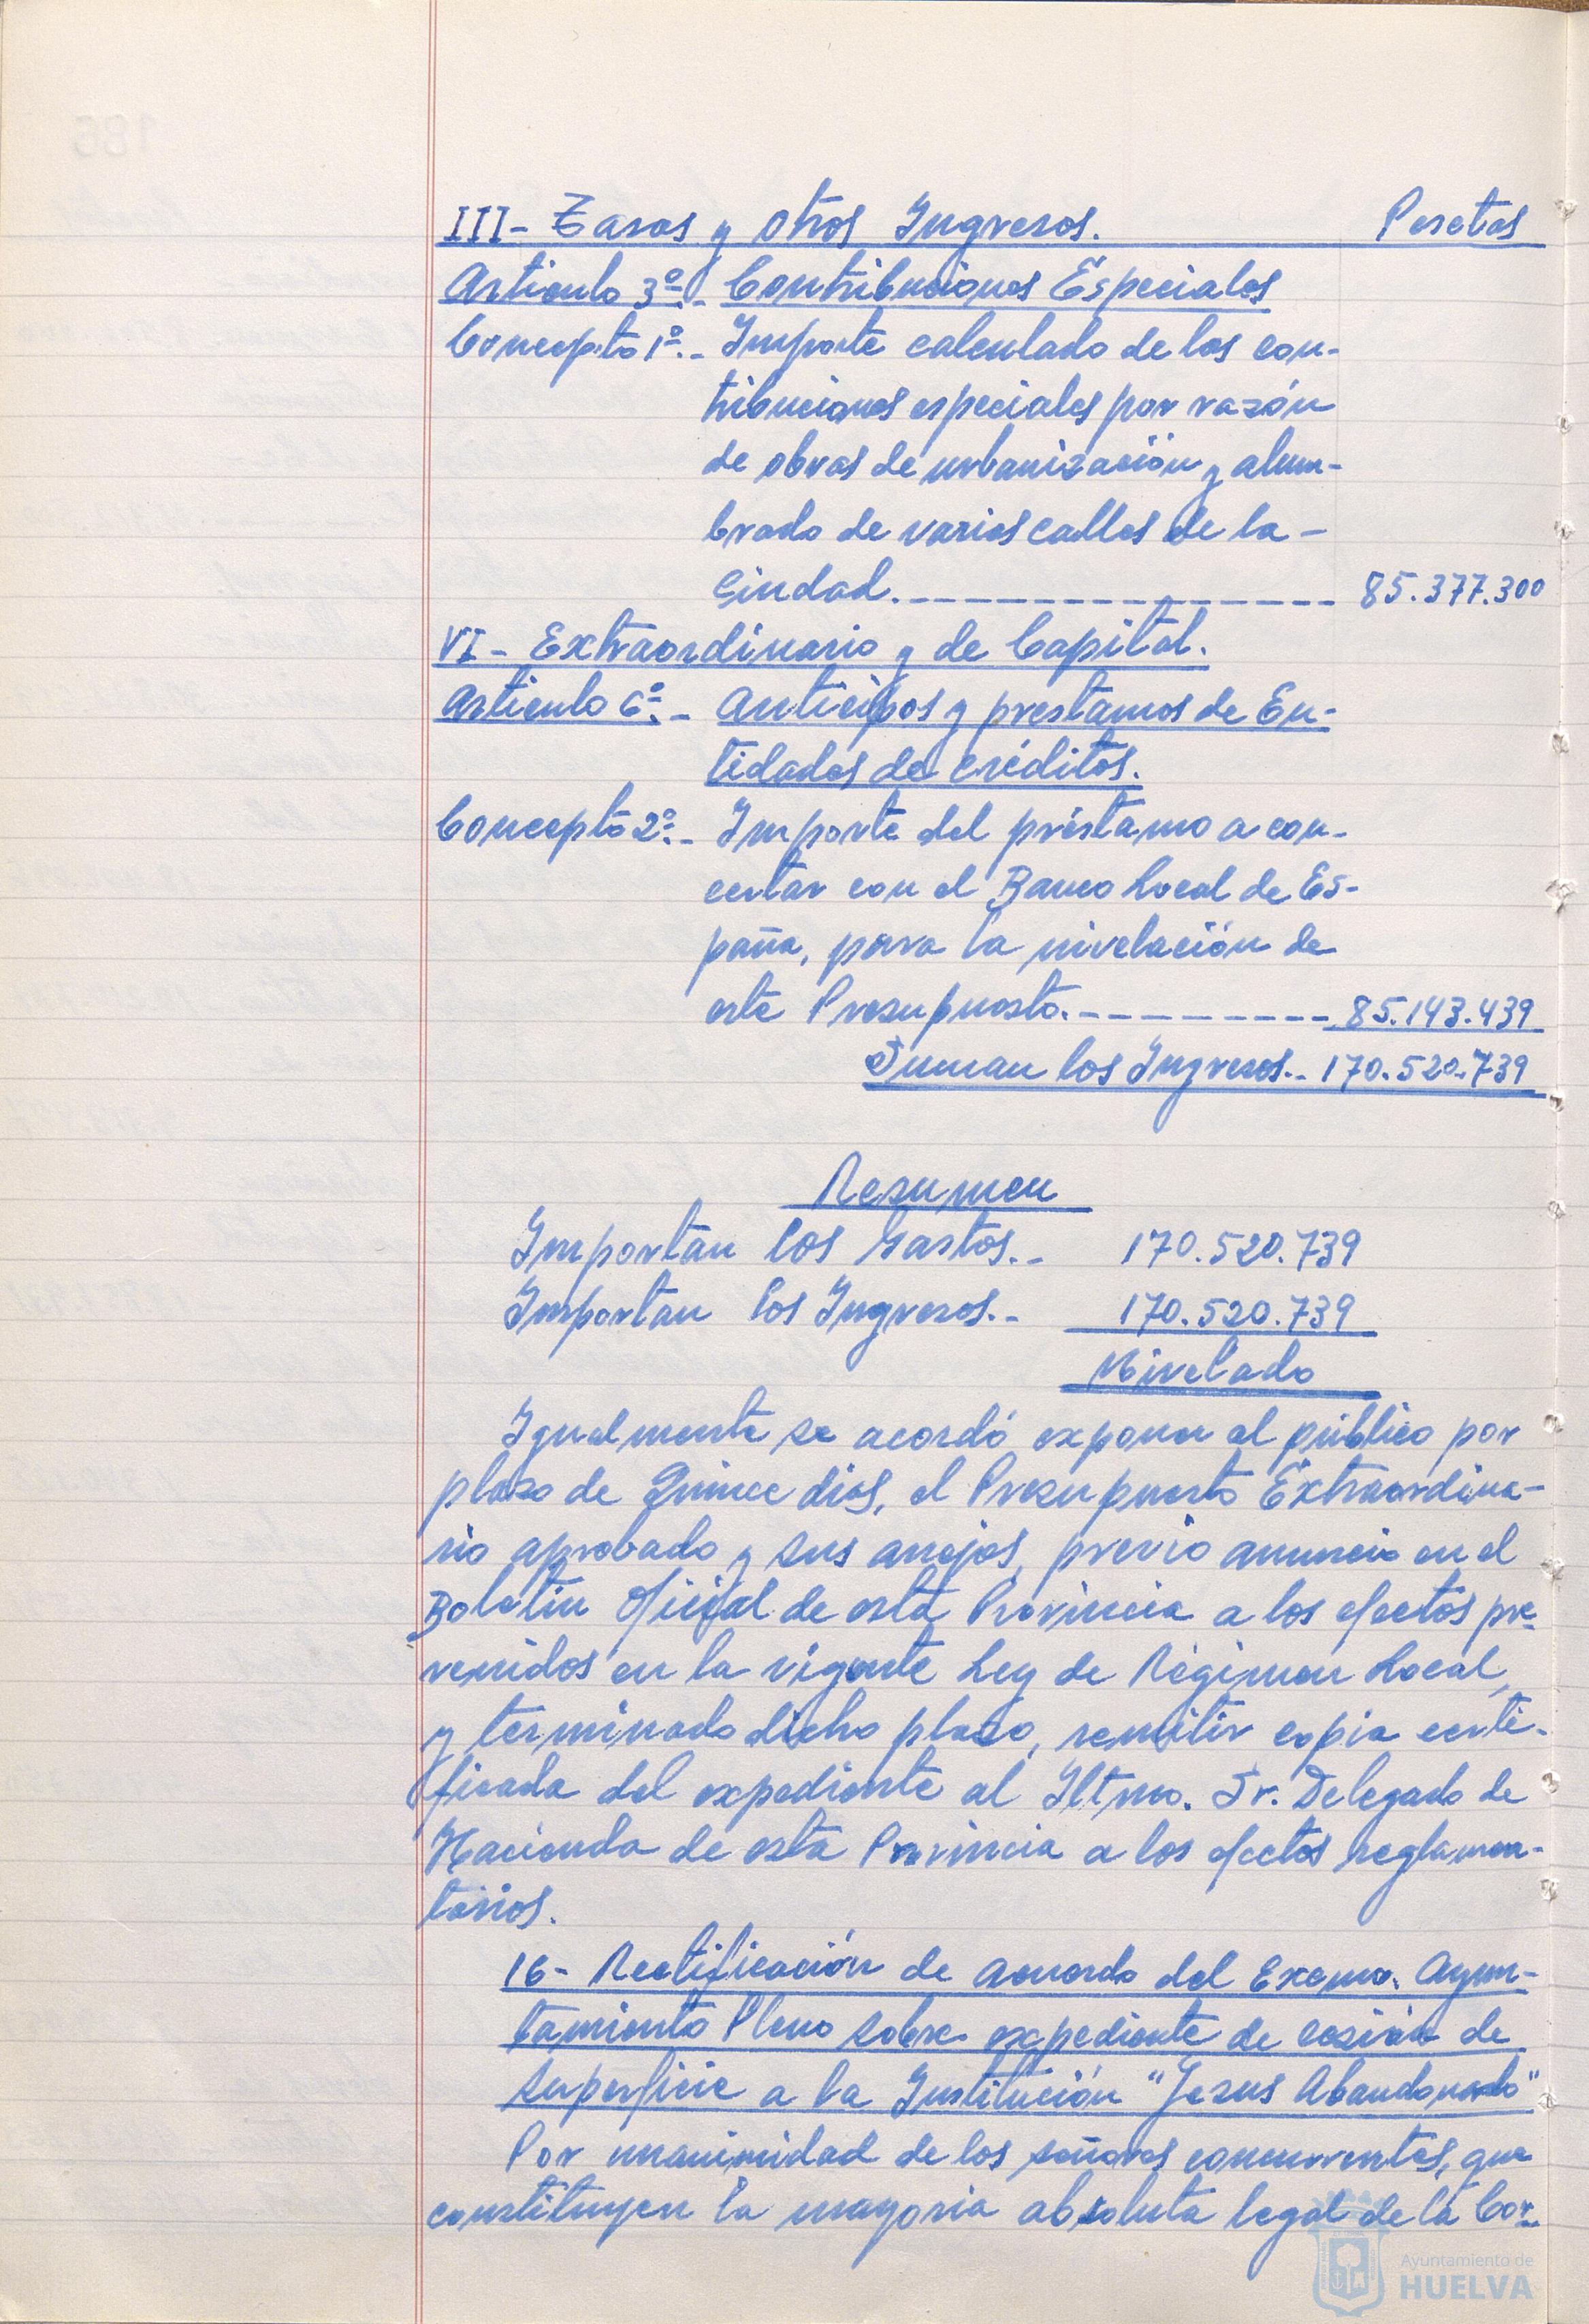 III- Tasas y otros Ingresos. Pesetas
Artículo 3º.- Contribuciones Especiales
Concepto 1º.- Importe calculado de las con-
tribuciones especiales por razón
de obras de urbanización y alum-
brado de varias calles de la -
Ciudad.---------------- 85.377.300
VI- Extraordinario y de Capital.
Artículo 6º.- Anticipos y prestamos de En-
tidades de créditos.
Concepto 2º.- Importe del préstamo a con-
certar con el Banco Local de Es-
paña, para la nivelación de
este Presupuesto.--------- 85.143.439
Suman los Ingresos.- 170.520.739
Resumen
Importan los Gastos.- 170.520.739
Importan los Ingresos.- 170.520.739
Nivelado
Igualmente se acordó exponer al público por
plazo de Quince dias, el Presupuesto Extraordina-
rio aprobado y sus anejos, previo anuncio en el
Boletín Oficial de esta Provincia a los efectos pre-
venidos en la vigente Ley de Régimen Local,
y terminado dicho plazo, remitir copia certi-
ficada del expediente al Iltmo. Sr. Delegado de
Hacienda de esta Provincia a los efectos reglamen-
tarios.
16- Rectificación de acuerdo del Excmo. Ayun-
tamiento Pleno sobre expediente de cesión de
superficie a la Institución "Jesus Abandonado"
Por unanimidad de los señores concurrentes, que
constituyen la mayoria absoluta legal de la Cor-
Ayuntamiento de
HUELVA